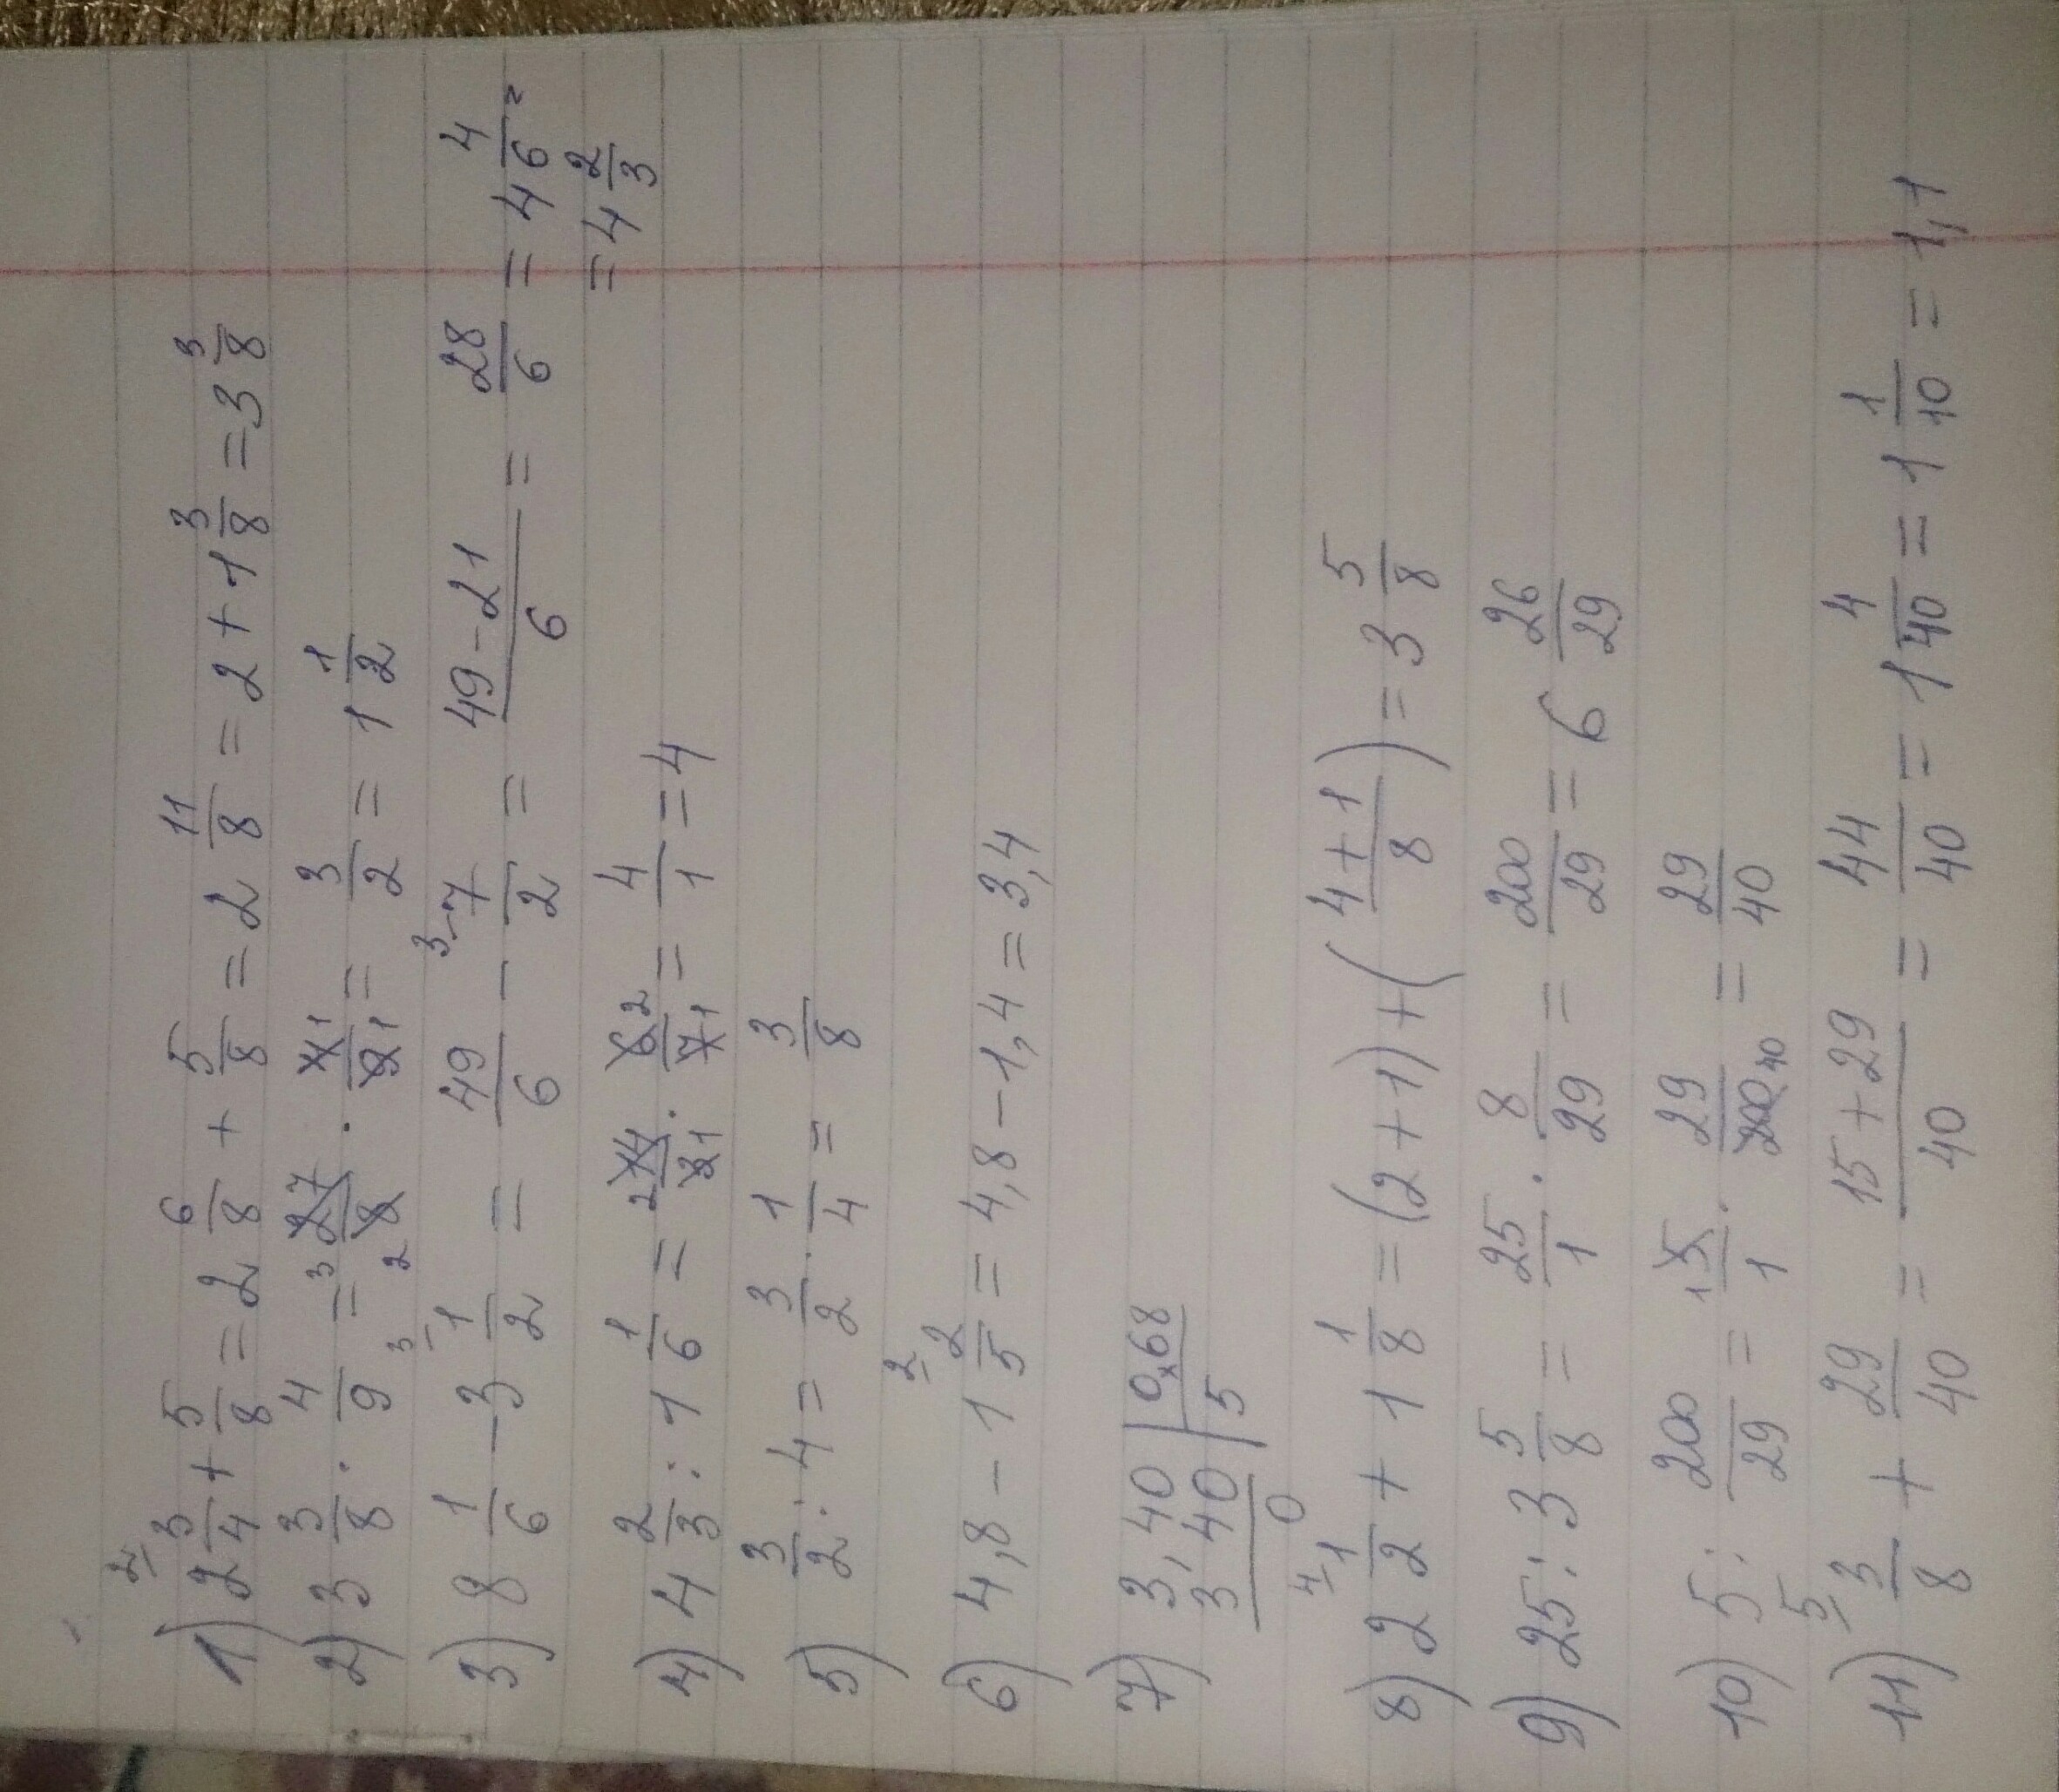 1) 2 3/4 + 5/8 = 2 6/8 + 5/8 = 2 11/8 = 2 + 1 3/8 = 3 3/8
2) 3 3/8 · 4/9 = 27/8 · 4/9 = 3/2 = 1 1/2
3) 8 1/6 - 3 1/2 = 49/6 - 7/2 = 49-21/6 = 28/6 = 4 4/6 =
= 4 2/3
4) 4 2/3 : 1 1/6 = 14/3 · 6/7 = 4/1 = 4
5) 3/2 : 4 = 3/2 · 1/4 = 3/8
6) 4,8 - 1 2/5 = 4,8 - 1,4 = 3,4
7) 3,40 | 0,68
3 40 | 5
0
8) 2 1/2 + 1 1/8 = (2+1) + (4+1/8) = 3 5/8
9) 25 : 3 5/8 = 25/1 · 8/29 = 200/29 = 6 26/29
10) 5 : 200/29 = 5/1 · 29/200 = 29/40
11) 3/8 + 29/40 = 15+29/40 = 44/40 = 1 4/40 = 1 1/10 = 1,1